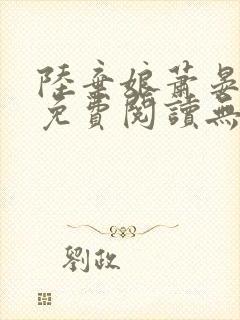 陸棄娘蕭晏
免費閱讀無
劉政